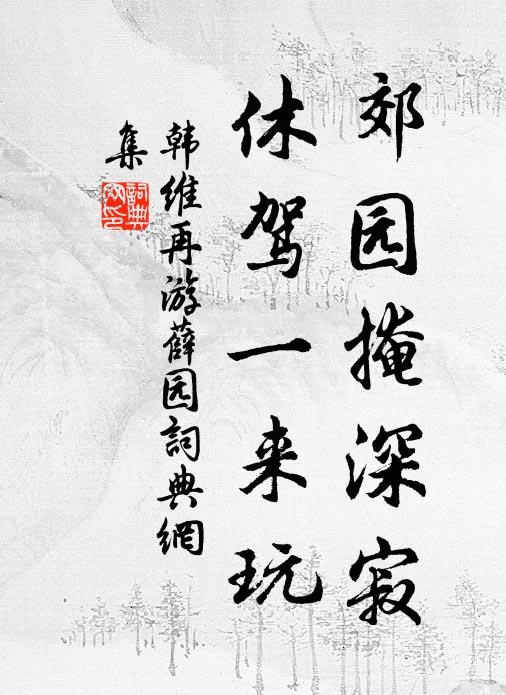 郊园掩深寂
休驾一来玩
韩维再游薛园词典網
集
詞典
网印